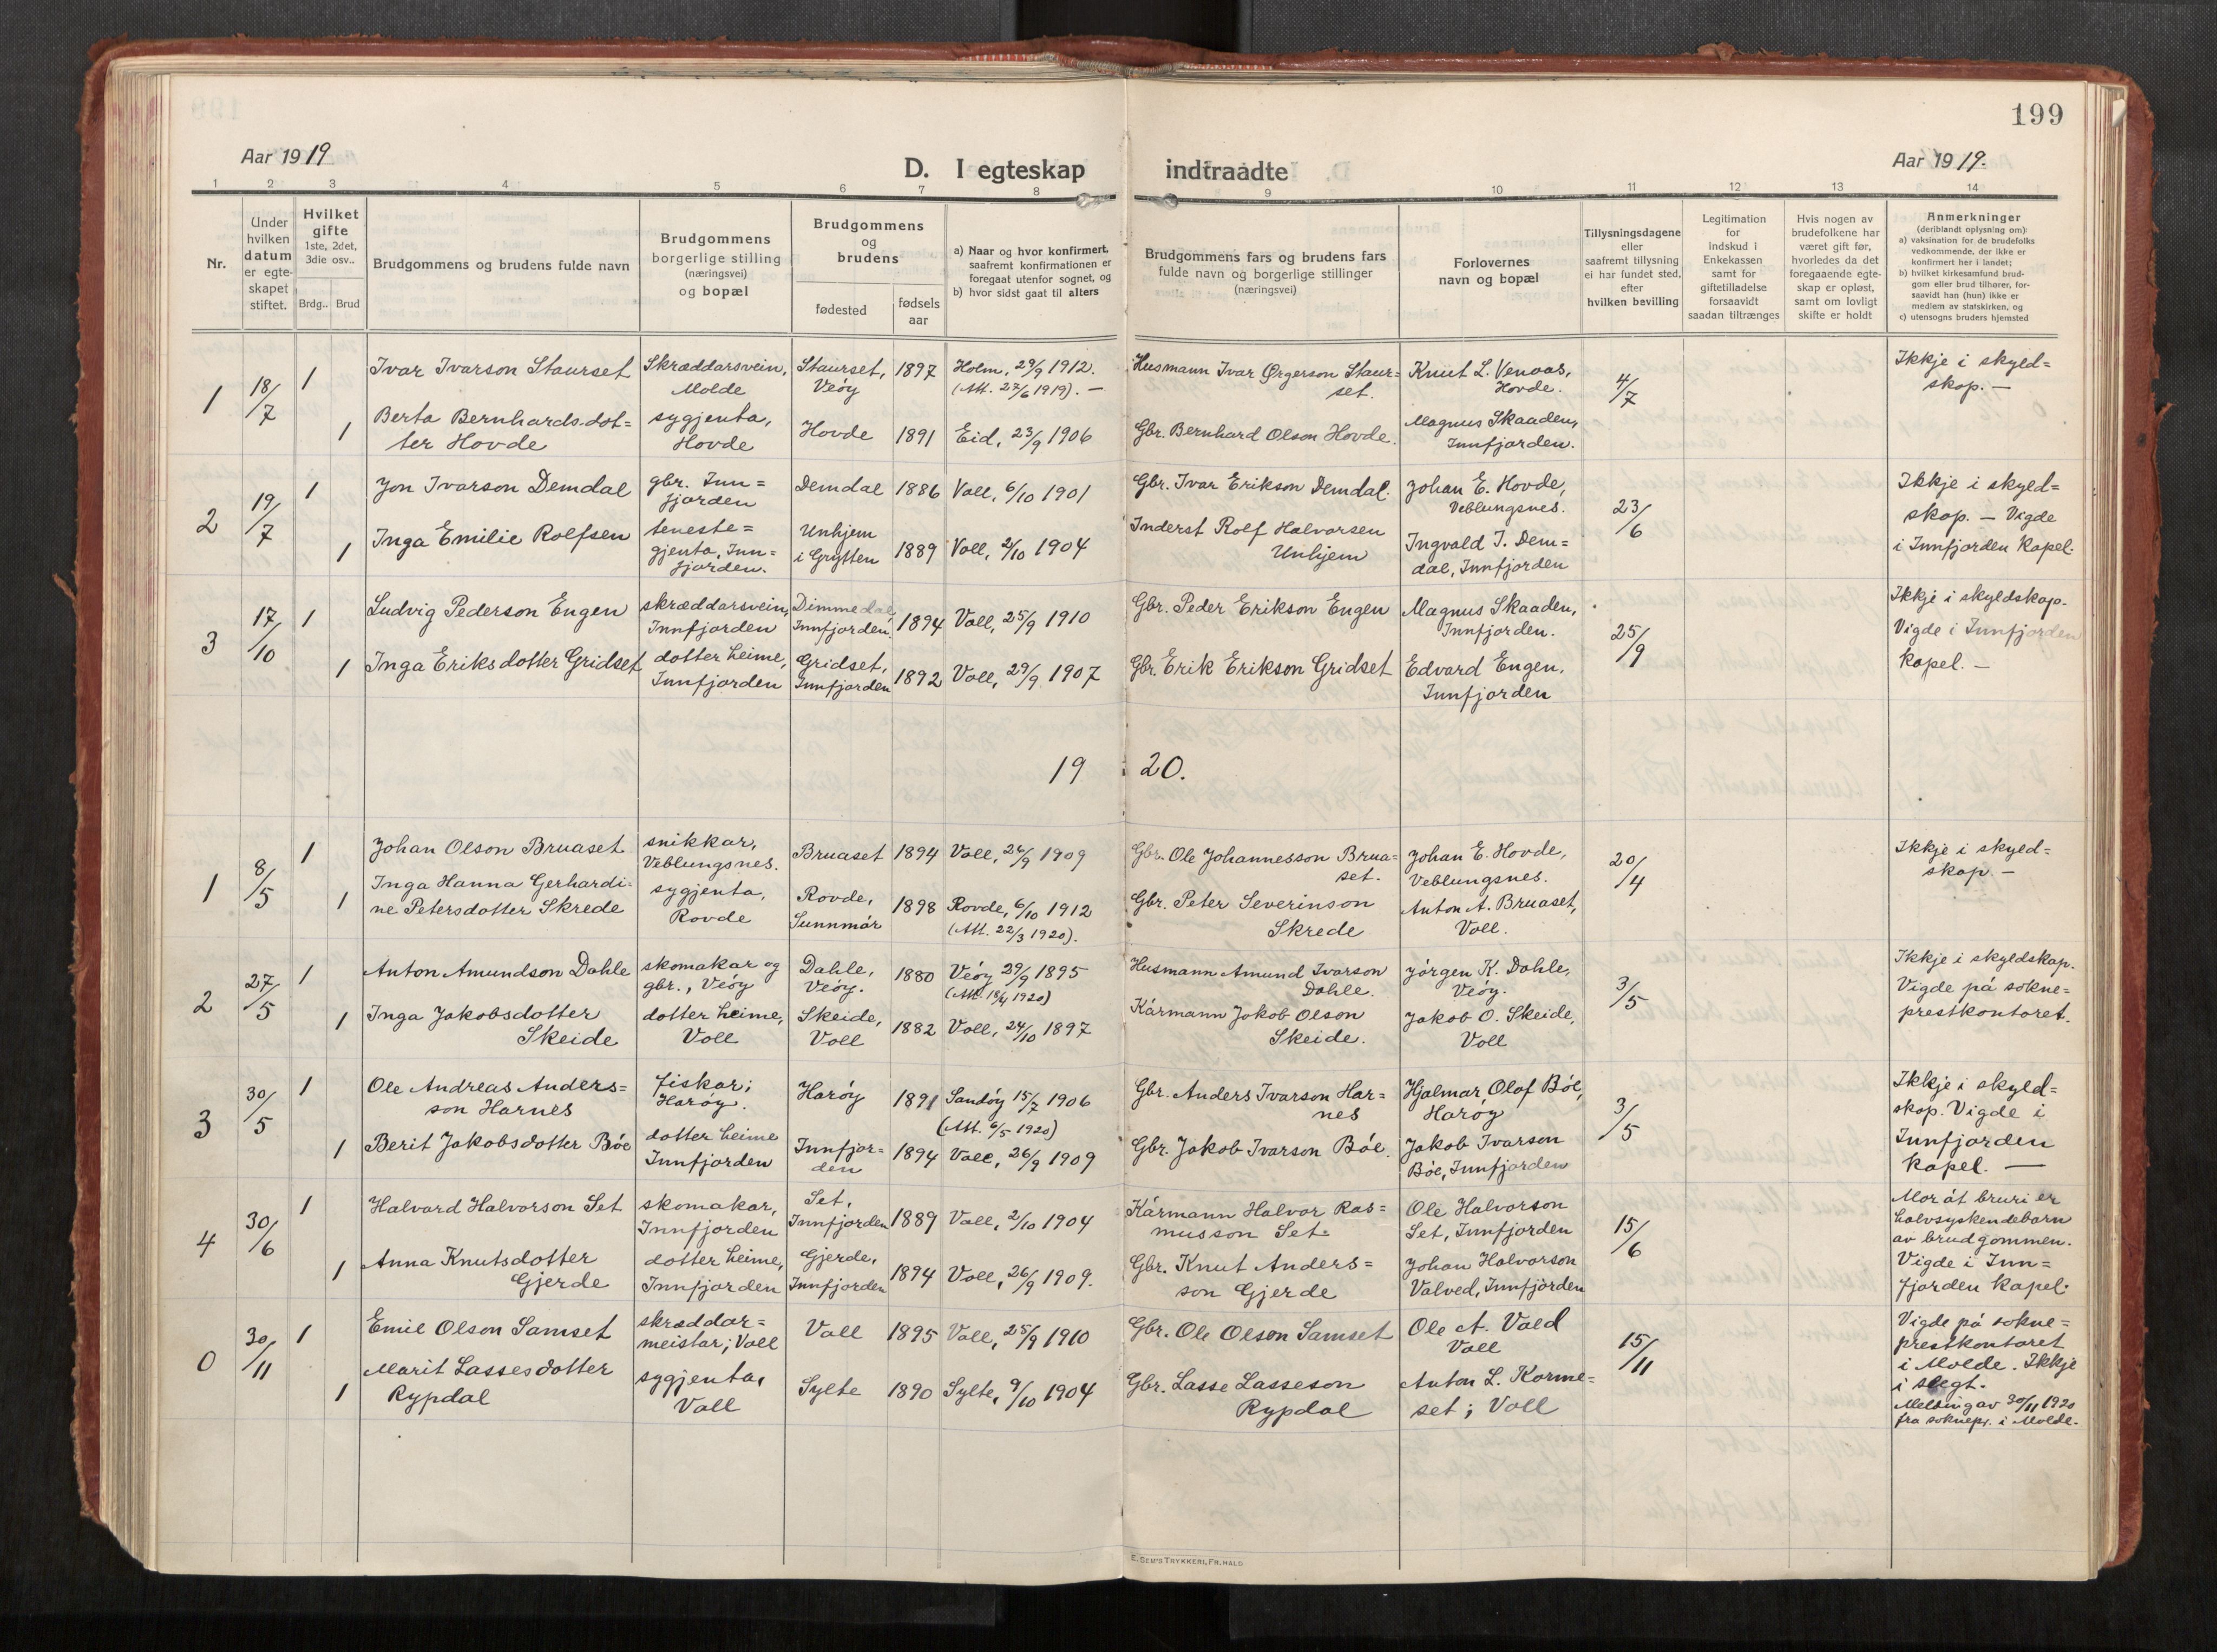 199
Aar 1919
D. I egteskap indtraadte
Aar 1919.
1 2 3 4 5 6 7 8 9 10 11 12 13 14
Nr.
Under
hvilken
datum
er egte-
skapet
stiftet.
Hvilket
gifte
1ste, 2det,
3die osv..
Brdg.. Brud
Brudgommens og brudens fulde navn
Brudgommens
borgerlige stilling
(næringsvei)
og bopæl
Brudgommens
og
brudens
fødested
fødsels
aar
a) Naar og hvor konfirmert,
saafremt konfirmationen er
foregaat utenfor sognet, og
b) hvor sidst gaat til alters
Brudgommens fars og brudens fars
fulde navn og borgerlige stillinger
(næringsvei)
Forlovernes
navn og bopæl
Tillysningsdagene
eller
saafremt tillysning
ei har fundet sted,
efter
hvilken bevilling
Legitimation
for
indskud i
Enkekassen
samt for
giftetilladelse
forsaavidt
saadan tiltrænges
Hvis nogen av
brudefolkene har
været gift før,
hvorledes da det
foregaaende egte-
skap er opløst,
samt om lovligt
skifte er holdt
Anmerkninger
(deriblandt oplysning om):
a) vaksination for de brudefolks
vedkommende, der ikke er
konfirmert her i landet;
b) hvilket kirkesamfund brud-
gom eller brud tilhører, for-
saavidt han (hun) ikke er
medlem av statskirken, og
c) utensogns bruders hjemsted
1
18/7
1
Ivar Ivarson Staurset
Skræddarsvein,
Molde
Staurset,
Veöy
1897
Holm, 29/9 1912.
(Att. 27/6 1919). —
Husmann Ivar Ørgerson Staur=
set.
Knut L. Venaas,
Hovde.
4/7
Ikkje i skyld=
skap. —
1
Berta Bernhardsdot=
ter Hovde
sygjenta,
Hovde
Hovde
1891
Eid, 23/9 1906
Gbr. Bernhard Olson Hovde.
Magnus Skaaden,
Innfjorden.
2
19/7
1
Jon Ivarson Demdal
gbr. Inn=
fjorden
Demdal
1886
Voll, 6/10 1901
Gbr. Ivar Erikson Demdal.
Johan E. Hovde,
Veblungsnes.
23/6
Ikkje i skyld=
skap. — Vigde
i Innfjorden Kapel.
1
Inga Emilie Rolfsen
teneste=
gjenta, Inn=
fjorden.
Unhjem
i Grytten
1889
Voll, 2/10 1904
Inderst Rolf Halvorsen
Unhjem
Ingvald I. Dem=
dal, Innfjorden
3
17/10
1
Ludvig Pederson Engen
skræddarsvein,
Innfjorden
Dimmedal,
Innfjorden.
1894
Voll, 25/9 1910
Gbr. Peder Erikson Engen
Magnus Skaaden,
Innfjorden.
25/9
Ikkje i skyldskap.
Vigde i Innfjorden
kapel. —
1
Inga Eriksdotter Gridset
dotter heime,
Innfjorden
Gridset,
Innfjorden
1892
Voll, 29/9 1907
Gbr. Erik Erikson Gridset
Edvard Engen,
Innfjorden
1920.
1
8/5
1
Johan Olson Bruaset
snikkar,
Veblungsnes.
Bruaset
1894
Voll, 26/9 1909
Gbr. Ole Johannesson Brua=
set.
Johan E. Hovde,
Veblungsnes.
20/4
Ikkje i skyld=
skap. —
1
Inga Hanna Gerhardi-
ne Petersdotter Skrede
sygjenta,
Rovde
Rovde,
Sunnmör
1898
Rovde, 6/10 1912
(Att. 22/3 1920).
Gbr. Peter Severinson
Skrede
Anton A. Bruaset,
Voll.
2
27/5
1
Anton Amundson Dahle
skomakar og
gbr., Veöy
Dahle,
Veöy.
1880
Veöy 29/9 1895
(Att. 18/4 1920)
Husmann Amund Ivarson
Dahle.
Jörgen K. Dahle,
Veöy.
3/5
Ikkje i skyldskap.
Vigde på sokne=
prestkontoret.
1
Inga Jakobsdotter
Skeide
dotter heime,
Voll
Skeide,
Voll
1882
Voll, 24/10 1897
Kårmann Jakob Olson
Skeide.
Jakob O. Skeide,
Voll
3
30/5
1
Ole Andreas Anders=
son Harnes
fiskar;
Haröy.
Haröy
1891
Sandöy 15/7 1906
(Att. 6/5 1920)
Gbr. Anders Ivarson Har=
nes
Hjalmar Olaf Böe,
Haröy
3/5
Ikkje i skyld=
skap. Vigde i
Innfjorden
kapel. —
1
Berit Jakobsdotter Böe
dotter heime
Innfjorden
Innfjor=
den
1894
Voll, 26/9 1909
Gbr. Jakob Ivarson Böe.
Jakob Ivarson
Böe, Innfjorden
4
30/6
1
Halvard Halvorson Set
skomakar,
Innfjorden
Set,
Innfjorden
1889
Voll, 2/10 1904
Kårmann Halvor Ras=
musson Set.
Ole Halvorson
Set, Innfjorden
15/6
Mor åt bruri er
halvsyskendebarn
av brudgommen.
Vigde i Inn=
fjorden kapel.
1
Anna Knutsdotter
Gjerde
dotter heime,
Innfjorden
Gjerde,
Innfjorden
1894
Voll, 26/9 1909.
Gbr. Knut Anders=
son Gjerde
Johan Halvorson
Valved, Innfjorden
0
30/11
1
Emil Olson Samset
skræddar=
meistar; Voll
Voll
1895
Voll, 25/9 1910
Gbr. Ole Olson Samset
Ole A. Vold
Voll
15/11
Vigde på sokne=
prestkontoret
i Molde. Ikkje
i slegt.
Melding av 30/11 1920
fra soknepr. i Molde.
1
Marit Lassesdotter
Rypdal
sygjenta,
Voll
Sylte
1890
Sylte, 9/10 1904
Gbr. Lasse Lasseson
Rypdal
Anton L. Korme=
set; Voll
E. SEM'S TRYKKERI, FR.HALD